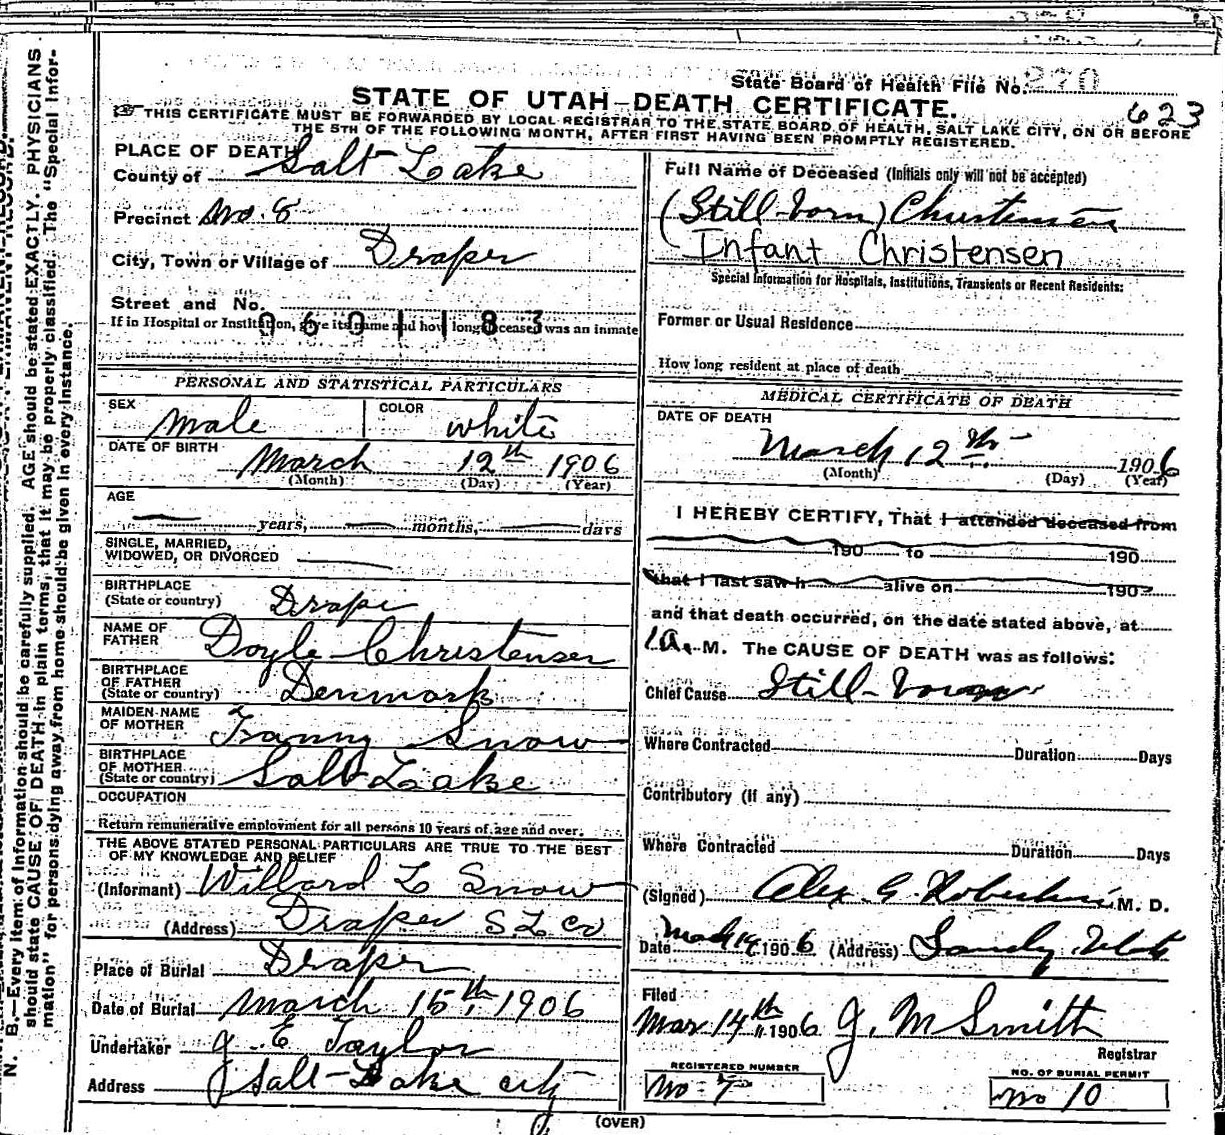 State Board of Health File No. 270
623
STATE OF UTAH—DEATH CERTIFICATE.
THIS CERTIFICATE MUST BE FORWARDED BY LOCAL REGISTRAR TO THE STATE BOARD OF HEALTH, SALT LAKE CITY, ON OR BEFORE
THE 5TH OF THE FOLLOWING MONTH, AFTER FIRST HAVING BEEN PROMPTLY REGISTERED.
PLACE OF DEATH
County of Salt Lake
Precinct No. 8
City, Town or Village of Draper
Street and No.
0601183
If in Hospital or Institution, give its name and how long deceased was an inmate
PERSONAL AND STATISTICAL PARTICULARS
SEX male COLOR white
DATE OF BIRTH March 12th 1906
(Month) (Day) (Year)
AGE
years, months, days
SINGLE, MARRIED,
WIDOWED, OR DIVORCED
BIRTHPLACE
(State or country) Draper
NAME OF
FATHER Doyle Christensen
BIRTHPLACE
OF FATHER
(State or country) Denmark
MAIDEN NAME
OF MOTHER Fanny Snow
BIRTHPLACE
OF MOTHER
(State or country) Salt Lake
OCCUPATION
Return remunerative employment for all persons 10 years of age and over.
THE ABOVE STATED PERSONAL PARTICULARS ARE TRUE TO THE BEST
OF MY KNOWLEDGE AND BELIEF
(Informant) Willard L Snow
(Address) Draper S. L. Co
Place of Burial Draper
Date of Burial March 15th, 1906
Undertaker J. E Taylor
Address Salt-Lake city
Full Name of Deceased (Initials only will not be accepted)
(Still-born) Christensen
(Infant Christensen
Special Information for Hospitals, Institutions, Transients or Recent Residents:
Former or Usual Residence
How long resident at place of death
MEDICAL CERTIFICATE OF DEATH
DATE OF DEATH
March 12th 1906
(Month) (Day) (Year)
I HEREBY CERTIFY, That I attended deceased from
190 to 190
that I last saw h alive on 190
and that death occurred, on the date stated above, at
1 a. M. The CAUSE OF DEATH was as follows:
Chief Cause Still-born
Where Contracted Duration Days
Contributory (if any)
Where Contracted Duration Days
(Signed) Alex G. Robertson M. D.
Date 1906 (Address) Sandy Utah
Filed
Mar 14th 1906 J. M Smith
Registrar
REGISTERED NUMBER
No 7
NO. OF BURIAL PERMIT
No 10
(OVER)
N. B.—Every item of information should be carefully supplied. AGE should be stated EXACTLY. PHYSICIANS
should state CAUSE OF DEATH in plain terms, that it may be properly classified. The "Special Infor-
mation" for persons dying away from home should be given in every instance.